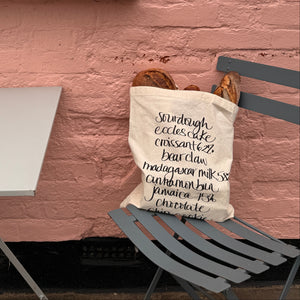 sourdough
eccles cake
croissant 62%
bear claw
madagascar milk 58%
cinnamon bun
jamaica 75%
chocolate